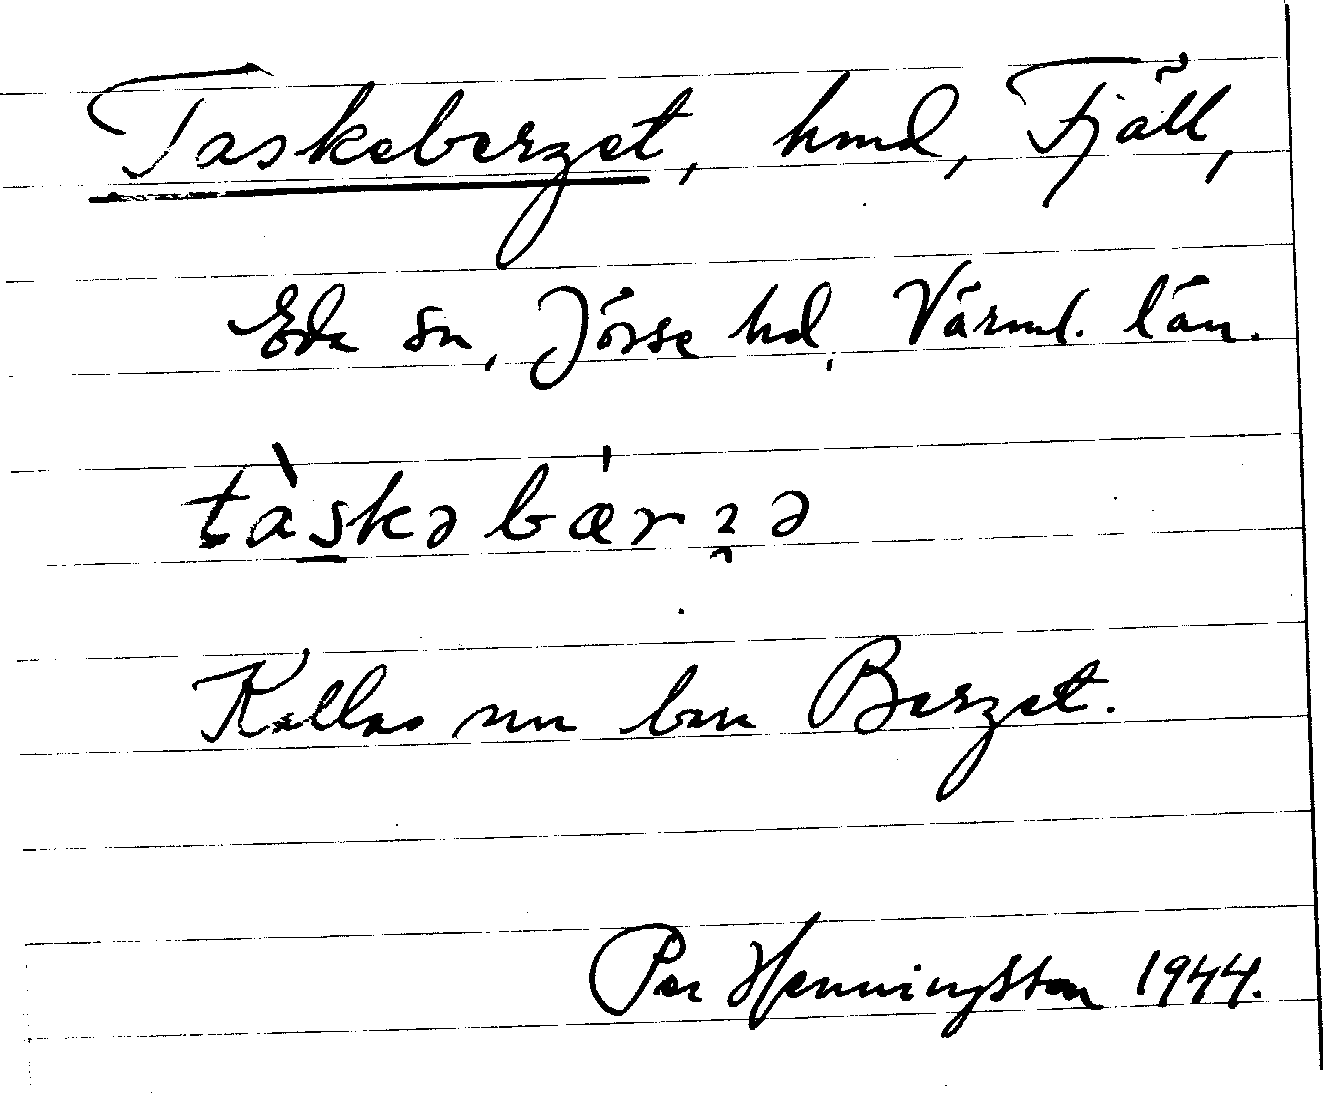 Taskeberget, hmd, Fjäll,
Eda sn, Jösse hd, Värml. län.
tàskəbærʒə
Kallas nu bara Berget.
Per Henningsson 1944.